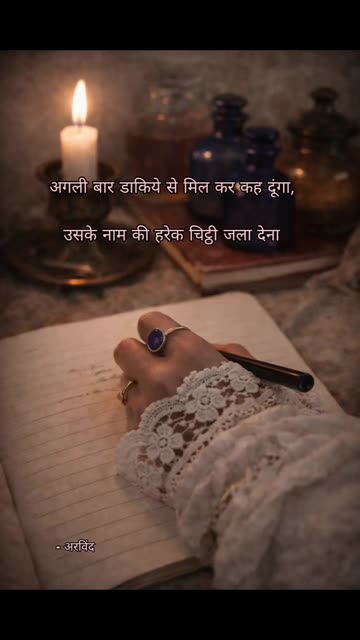 अगली बार डाकिये से मिल कर कह दूंगा,
उसके नाम की हरेक चिट्ठी जला देना
- अरविंद